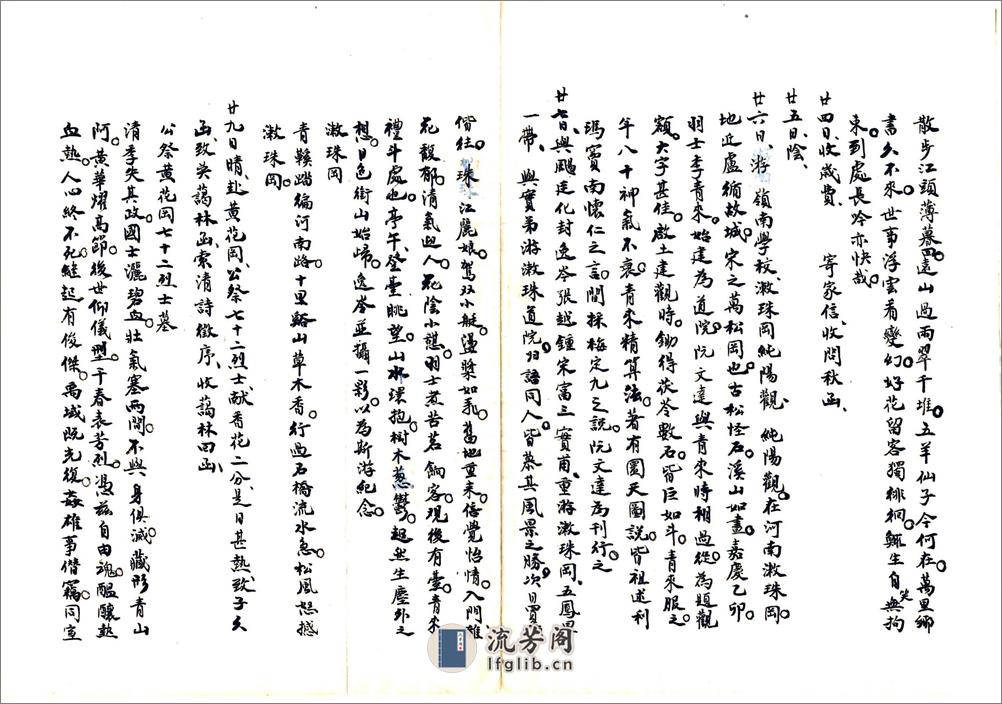 散步江頭薄暮回。遠山過雨翠千堆。五羊仙子今何在。萬里鄉
書久不來。世事浮雲看變幻。好花留客獨徘徊。鯫生自笑無拘
束。到處長吟亦快哉。
廿四日、收歲費、寄家信、收問秋函、
廿五日、陰、
廿六日、游嶺南學校、漱珠岡純陽觀、純陽觀。在河南漱珠岡。
地近盧循故城。宋之萬松岡也。古松怪石。溪山如畫。嘉慶乙卯。
羽士李青來。始建為道院。阮文達與青來時相過從。為題觀
額。大字甚佳。啟土建觀時。鋤得茯苓數石。皆巨如斗。青來服之
年八十神氣不衰。青來精算法。著有圜天圖說。皆祖述利
瑪竇南懷仁之言。間採梅定九之說。阮文達為刊行之
廿七日、與颺廷化封逸岑張越鍾宋富三實甫、重游漱珠岡、五鳳里
一帶、與實弟游漱珠道院。歸語同人。皆慕其風景之勝。次日買
偕往。珠江麗娘駕双小艇。盪槳如飛。舊地重來。倍覺怡情。入門雜
花馥郁。清氣迎人。花陰小憩。羽士煮苦茗餉客。觀後有臺。青來
禮斗處也。亭午。登臺眺望。山水環抱。樹木葱鬱。超然生塵外之
想。日色銜山始歸。逸岑並攝一影。以為斯游紀念。
漱珠岡
青鞵踏徧河南路。十里谿山草木香。行過石橋流水急。松風怒撼
漱珠岡。
廿九日晴、赴黃花岡、公祭七十二烈士、献香花二分、是日甚熱、致子久
函、致朱藹林函、索清詩徵序、收藹林回函、
公祭黃花岡七十二烈士墓
清季失其政。國士灑碧血。壯氣塞兩間。不與身俱滅。藏形青山
阿。黃華耀高節。後世仰儀型。千春表芳烈。憑茲自由魂。醞釀熱
血熱。人心終不死。繼起有俊傑。禹域既光復。姦雄事僭竊。同室
流芳阁
lfglib.cn